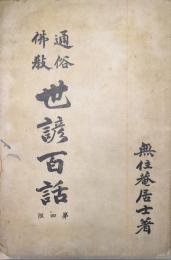 無住菴居士著
通俗
佛教
世諺百話
第四版